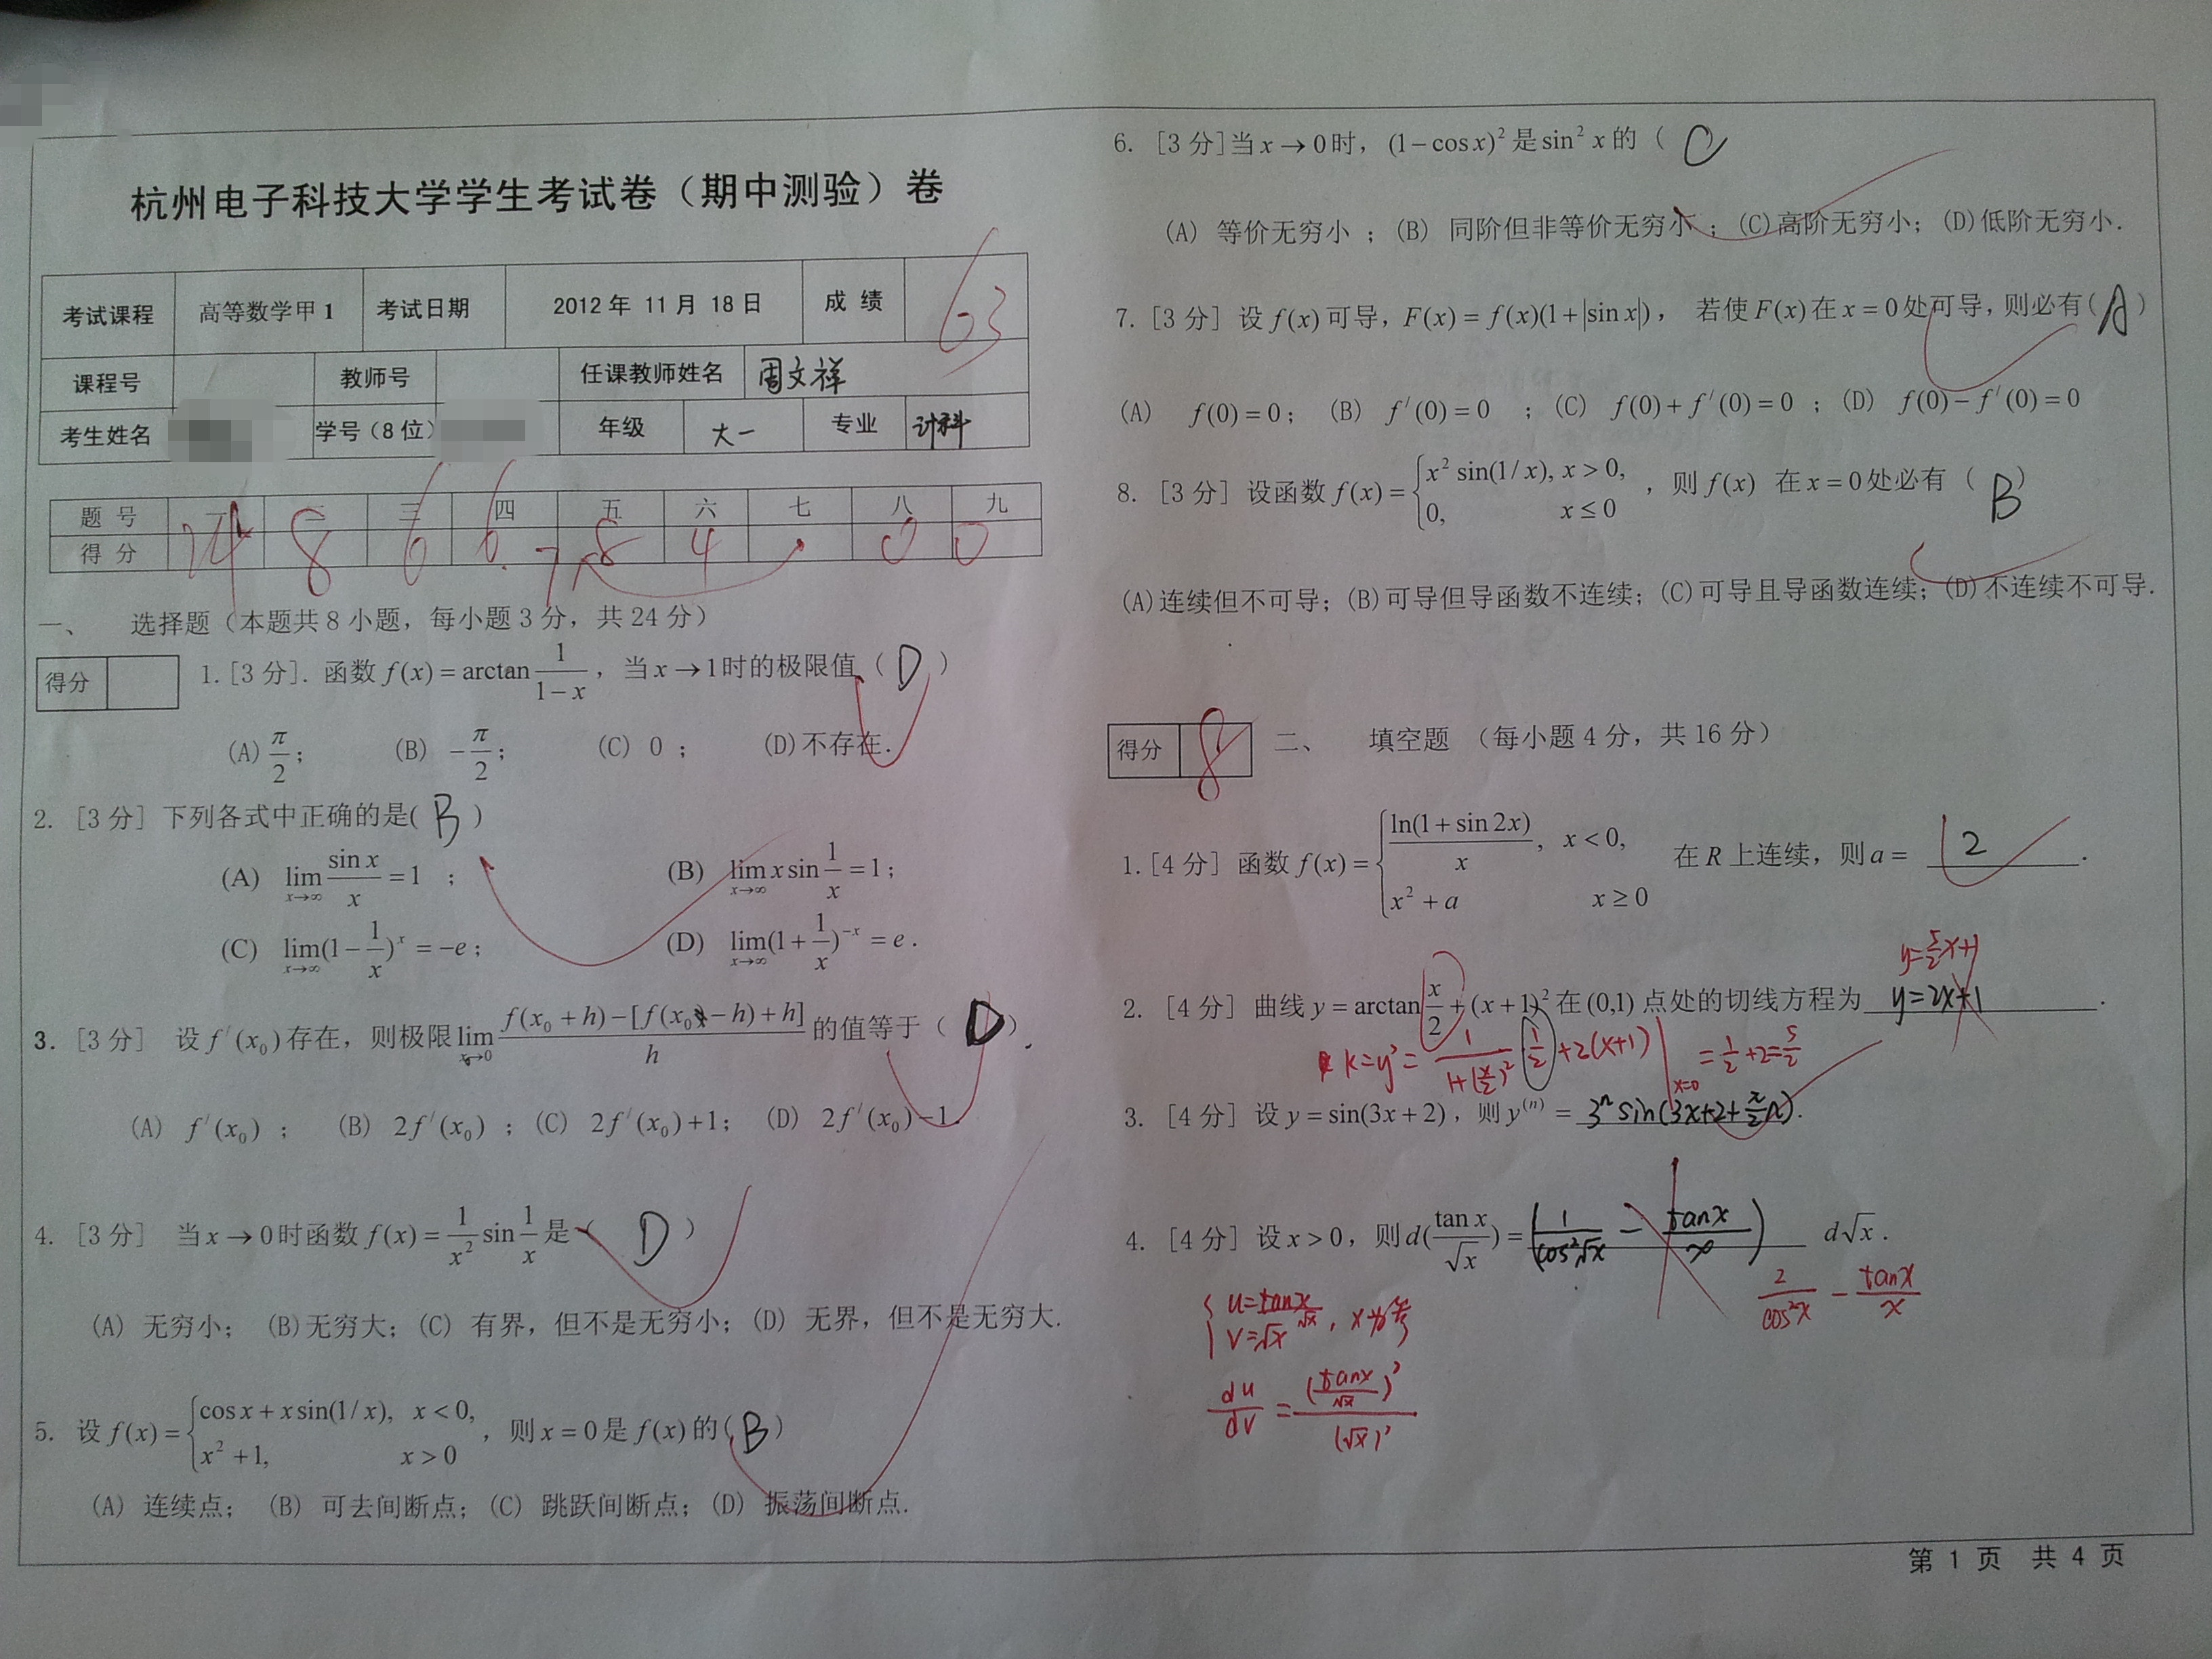 杭州电子科技大学学生考试卷（期中测验）卷
考试课程 高等数学甲1 考试日期 2012年 11月 18日 成绩 63
课程号 教师号 任课教师姓名 周文祥
考生姓名 学号（8位） 年级 大一 专业 计科
题号 一 二 三 四 五 六 七 八 九
得分 24 8 6 6 7 8 4 0 0
一、 选择题（本题共8小题，每小题3分，共24分）
得分
1.[3分]. 函数 f(x) = arctan 1/(1−x)，当 x→1时的极限值（ D ）
(A) π/2； (B) −π/2； (C) 0 ； (D)不存在.
2. [3分] 下列各式中正确的是( B )
(A) lim_{x→∞} sin x/x = 1 ； (B) lim_{x→∞} x sin 1/x = 1；
(C) lim_{x→∞} (1−1/x)^x = −e； (D) lim_{x→∞} (1+1/x)^{−x} = e.
3. [3分] 设 f′(x₀)存在，则极限 lim_{x→0} (f(x₀+h)−[f(x₀−h)+h])/h 的值等于（ D ）.
(A) f′(x₀) ； (B) 2f′(x₀) ；(C) 2f′(x₀)+1； (D) 2f′(x₀)−1.
4. [3分] 当 x→0时函数 f(x) = 1/x² sin 1/x 是（ D ）
(A) 无穷小； (B)无穷大；(C) 有界，但不是无穷小；(D) 无界，但不是无穷大.
5. 设 f(x) = { cos x + x sin(1/x), x < 0, x² + 1, x > 0 ，则 x = 0是 f(x)的( B )
(A) 连续点； (B) 可去间断点；(C) 跳跃间断点；(D) 振荡间断点.
6. [3分]当 x→0时，(1−cos x)² 是 sin² x 的（ C
(A) 等价无穷小 ；(B) 同阶但非等价无穷小 ；(C)高阶无穷小；(D)低阶无穷小.
7. [3分] 设 f(x)可导，F(x) = f(x)(1+|sin x|)， 若使 F(x)在 x = 0处可导，则必有( A )
(A) f(0) = 0； (B) f′(0) = 0 ；(C) f(0)+f′(0) = 0 ；(D) f(0)−f′(0) = 0
8. [3分] 设函数 f(x) = { x² sin(1/x), x > 0, 0, x ≤ 0 ，则 f(x) 在 x = 0处必有（ B ）
(A)连续但不可导；(B)可导但导函数不连续；(C)可导且导函数连续；(D)不连续不可导.
得分 8 二、 填空题 （每小题4分，共16分）
1.[4分] 函数 f(x) = { ln(1+sin 2x)/x, x < 0, x² + a x ≥ 0 在 R 上连续，则 a = 2 .
y=5/2x+1
2. [4分] 曲线 y = arctan x/2 + (x+1)² 在(0,1)点处的切线方程为 y=2x+1 .
k=y'= 1/(1+(x/2)²) 1/2 +2(x+1)|x=0 = 1/2 +2=5/2
3. [4分] 设 y = sin(3x+2)，则 y⁽ⁿ⁾ = 3ⁿ sin(3x+2+π/2 n).
4. [4分] 设 x > 0，则 d(tan x/√x) = (1/cos²√x − tanx/x) d√x.
2/cos²x − tanx/x
{ u=tanx/√x v=√x , x为参
du/dv = (tanx/√x)'/(√x)'
第 1 页 共 4 页